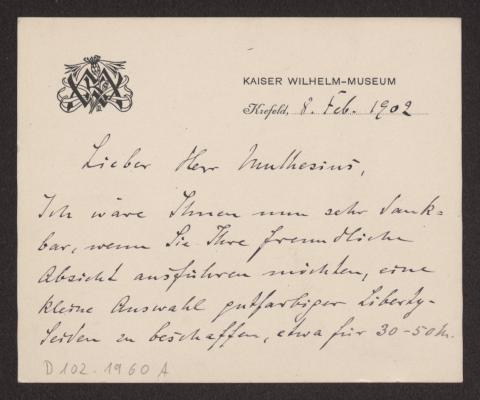 KAISER WILHELM-MUSEUM
Krefeld, 8. Feb. 1902
Lieber Herr Muthesius,
Ich wäre Ihnen nun sehr dank-
bar, wenn Sie Ihre freundliche
Absicht ausführen möchten, eine
kleine Auswahl gutfarbiger Liberty-
Seiden zu beschaffen, etwa für 30-50 M.
D 102-1960 A